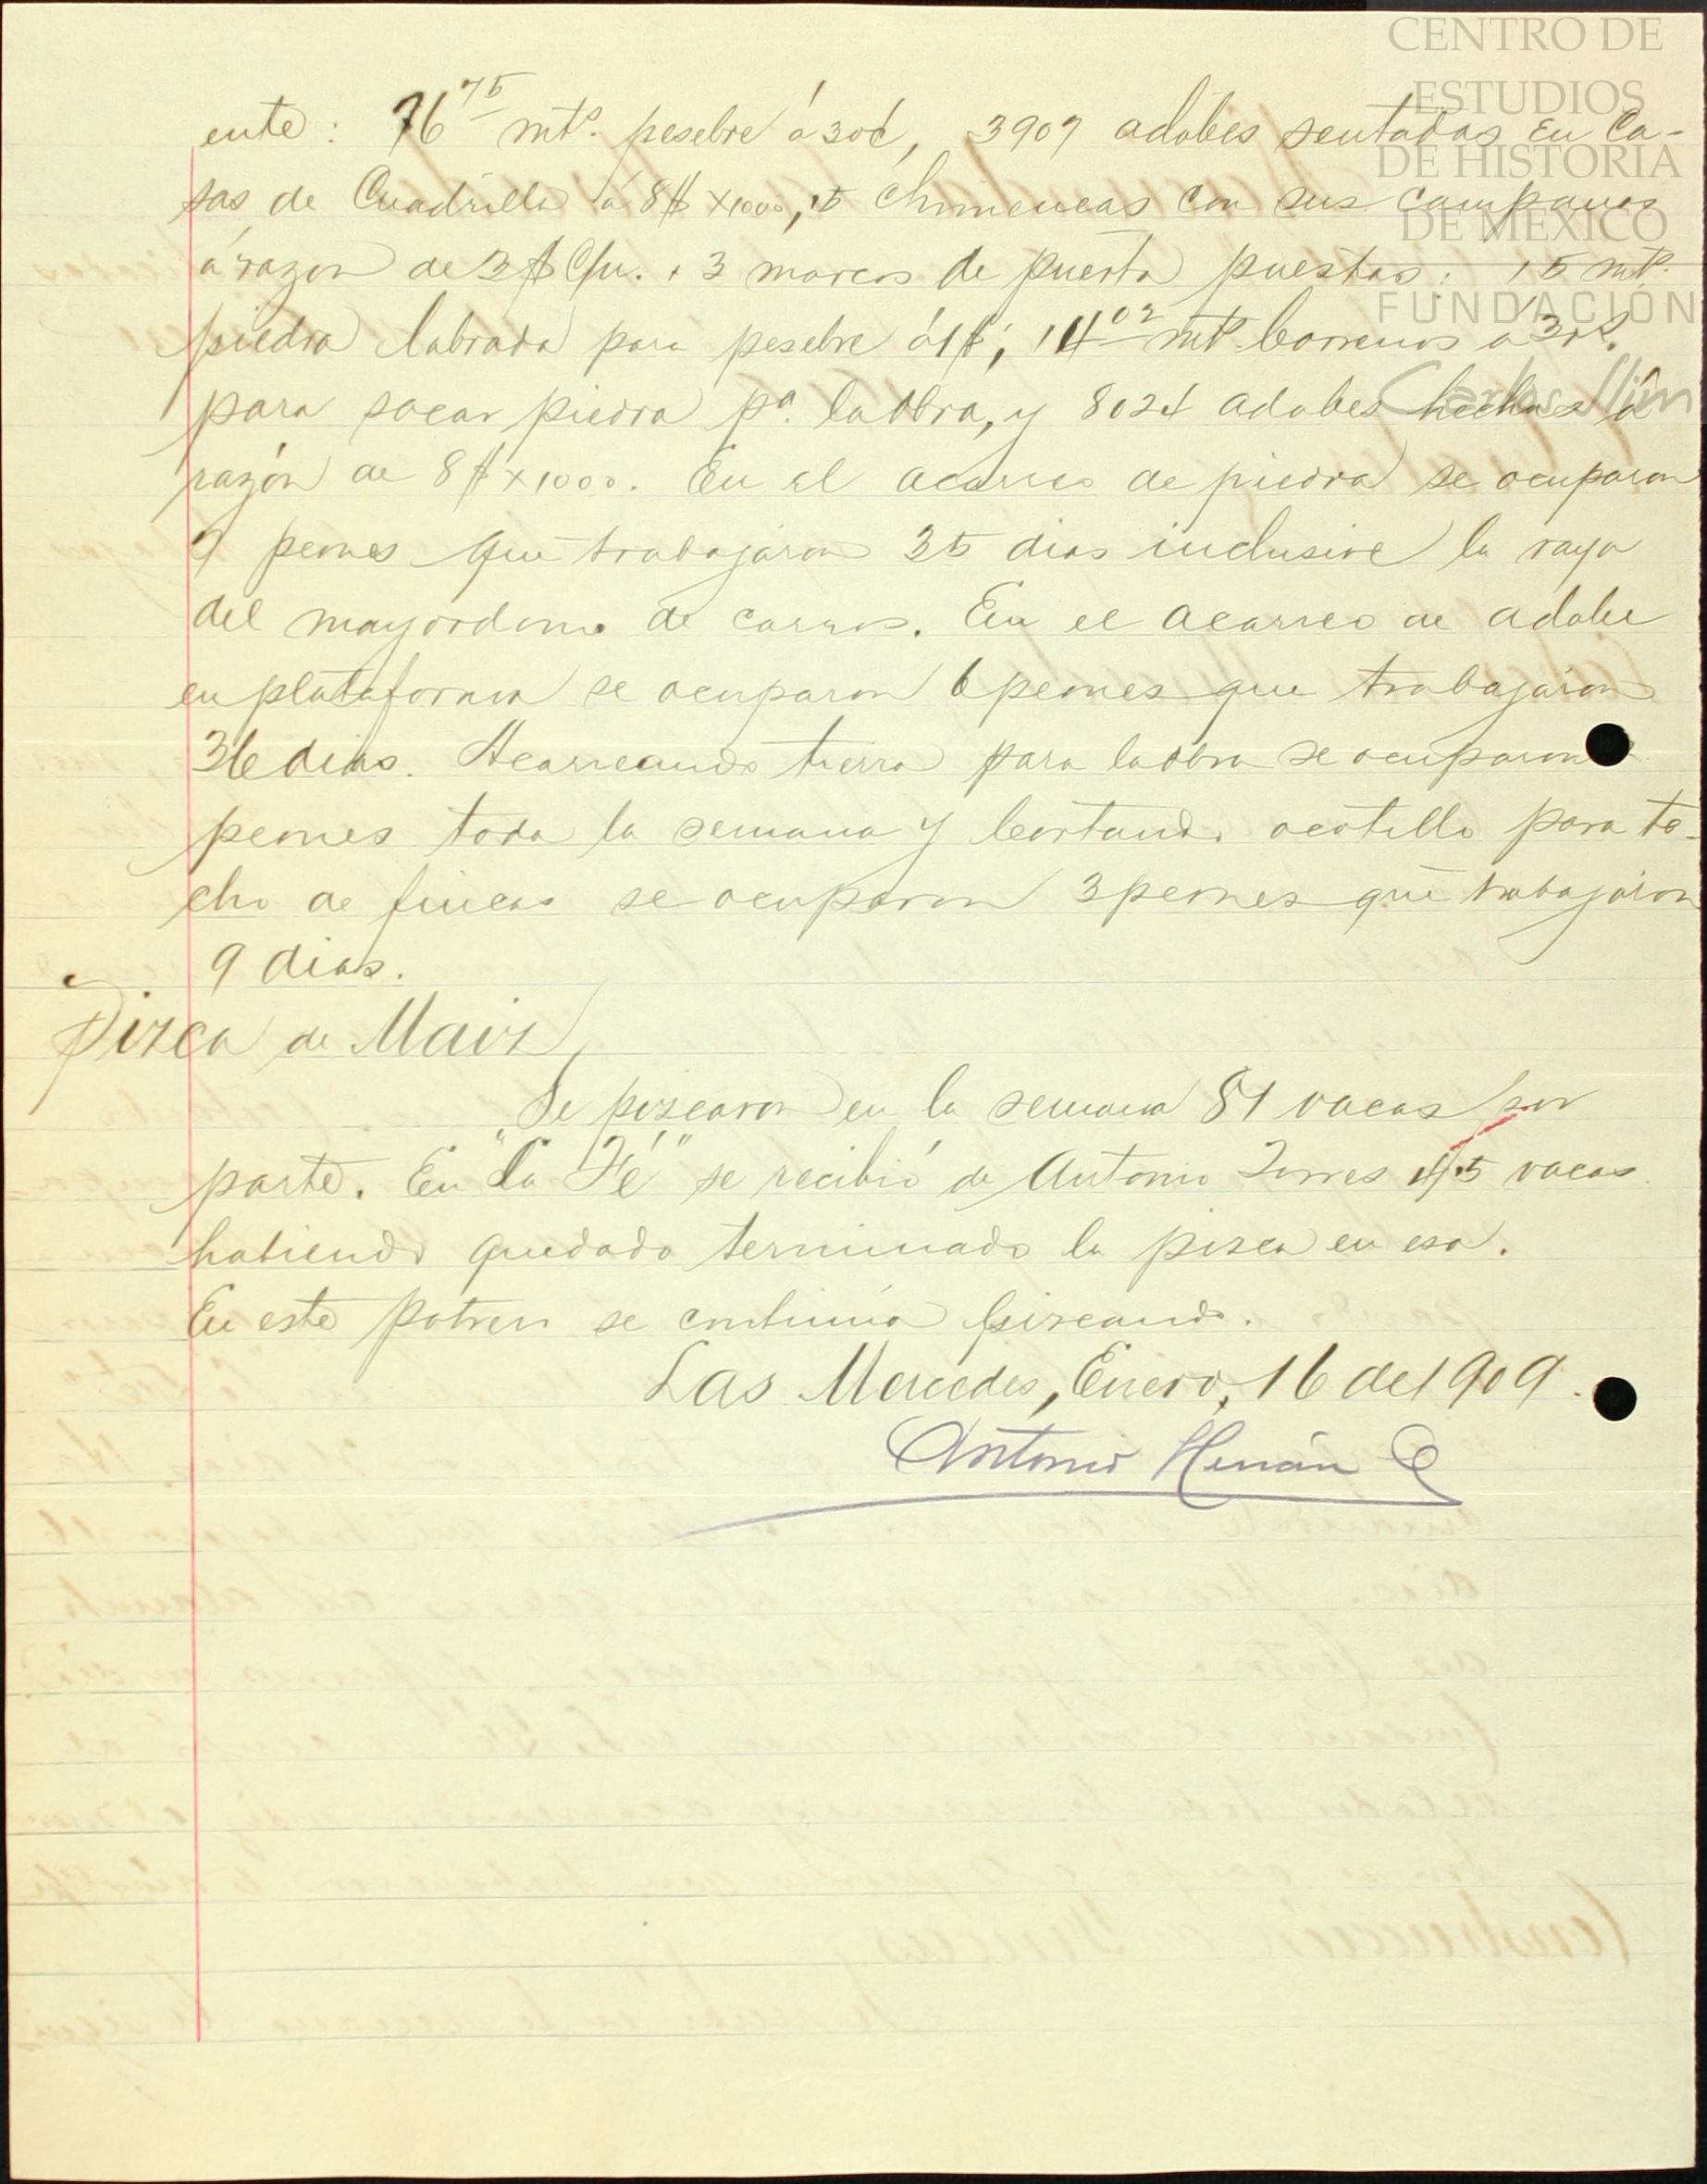 CENTRO DE
ESTUDIOS
DE HISTORIA
DE MÉXICO
FUNDACIÓN
Carlos Slim
ente: 76 75 mts. pesebre á 30¢, 3907 adobes sentados en Ca-
sas de Cuadrilla á 8$ x 1000, 5 Chimeneas con sus campanas
á razon de 3$ C/u. 3 marcos de puerta puestos: 15 mts.
piedra labrada para pesebre á 1$; 14 02 mts. barrenos á
para sacar piedra pa. la Obra, y 8024 adobes hechos á
razón de 8$ x 1000. En el acarreo de piedra se ocuparon
9 peones que trabajaron 35 dias inclusive la raya
del mayordomo de carros. En el acarreo de adobe
en plataforma se ocuparon 6 peones que trabajaron
36 dias. Acarreando tierra para la obra se ocuparon
peones toda la semana y Cortando ocotillo para te-
cho de fincas se ocuparon 3 peones que trabajaron
9 dias.
Pizca de Maiz
Se pizcaron en la semana 81 vacas por
parte. En "La Fé" se recibió de Antonio Torres 45 vacas
habiendo quedado terminado la pizca en esa.
En este potrero se continúa pizcando.
Las Mercedes, Enero, 16 de 1909.
Antonio Hernán